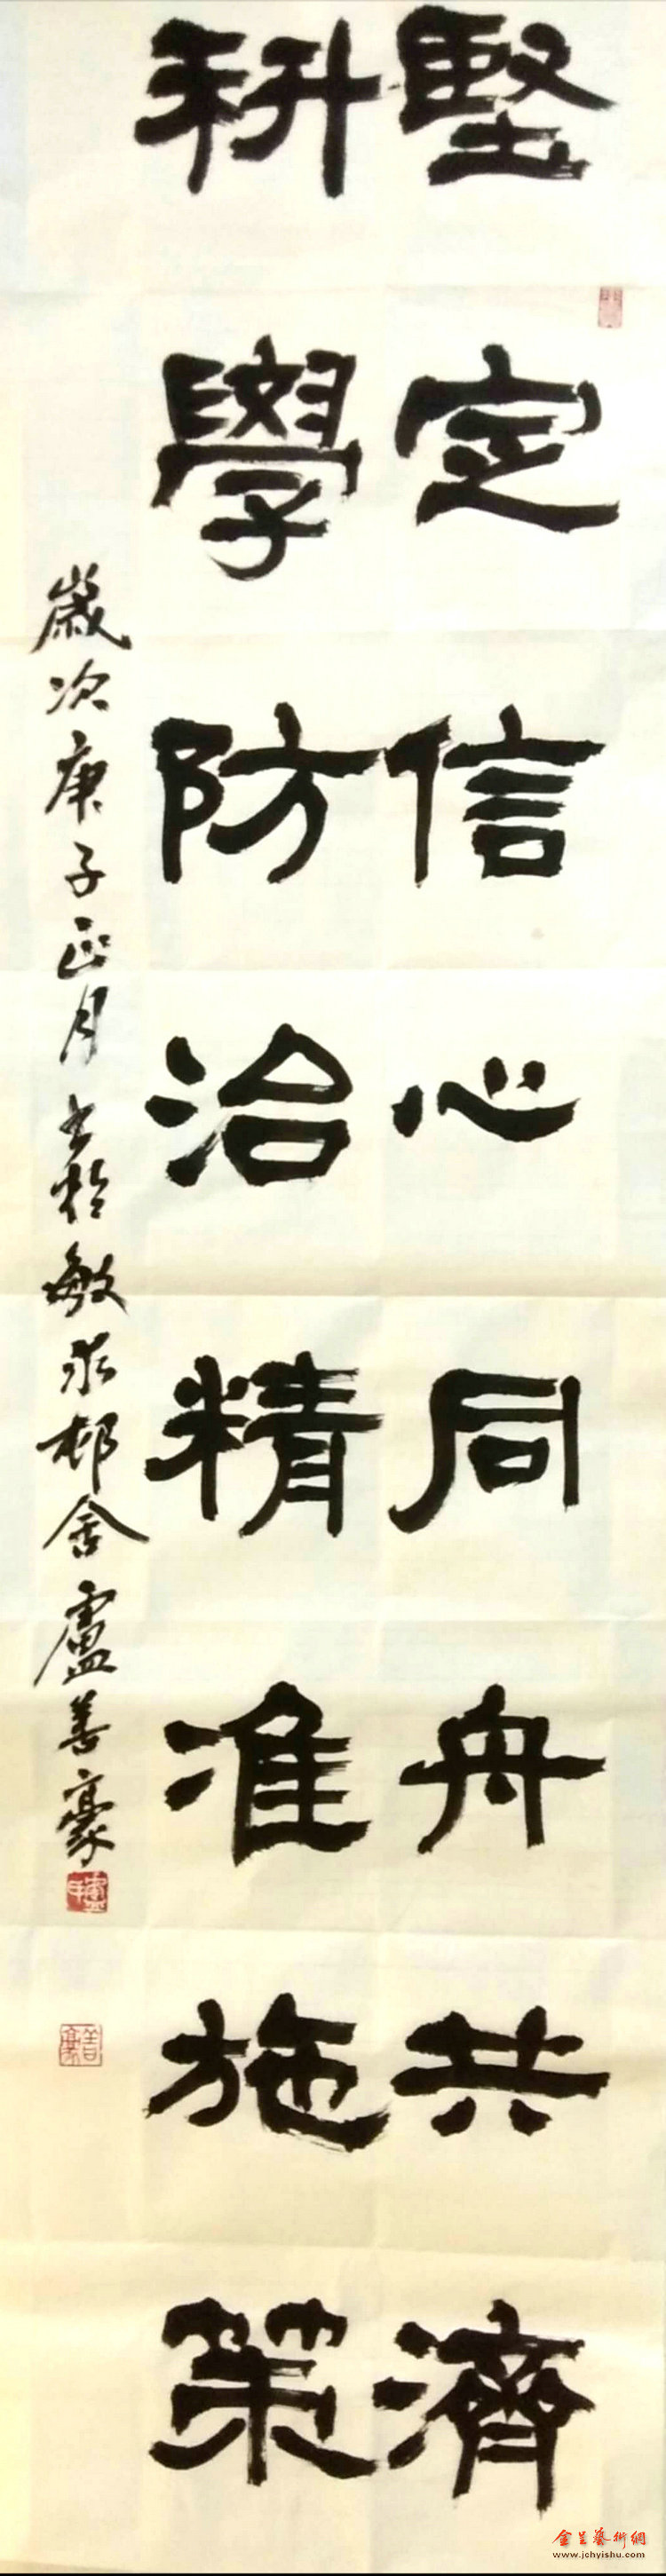 堅定信心同舟共濟
科學防治精准施策
歲次庚子正月书於敏求邨舍盧善豪
善豪
金呈藝術網
www.jchyishu.com